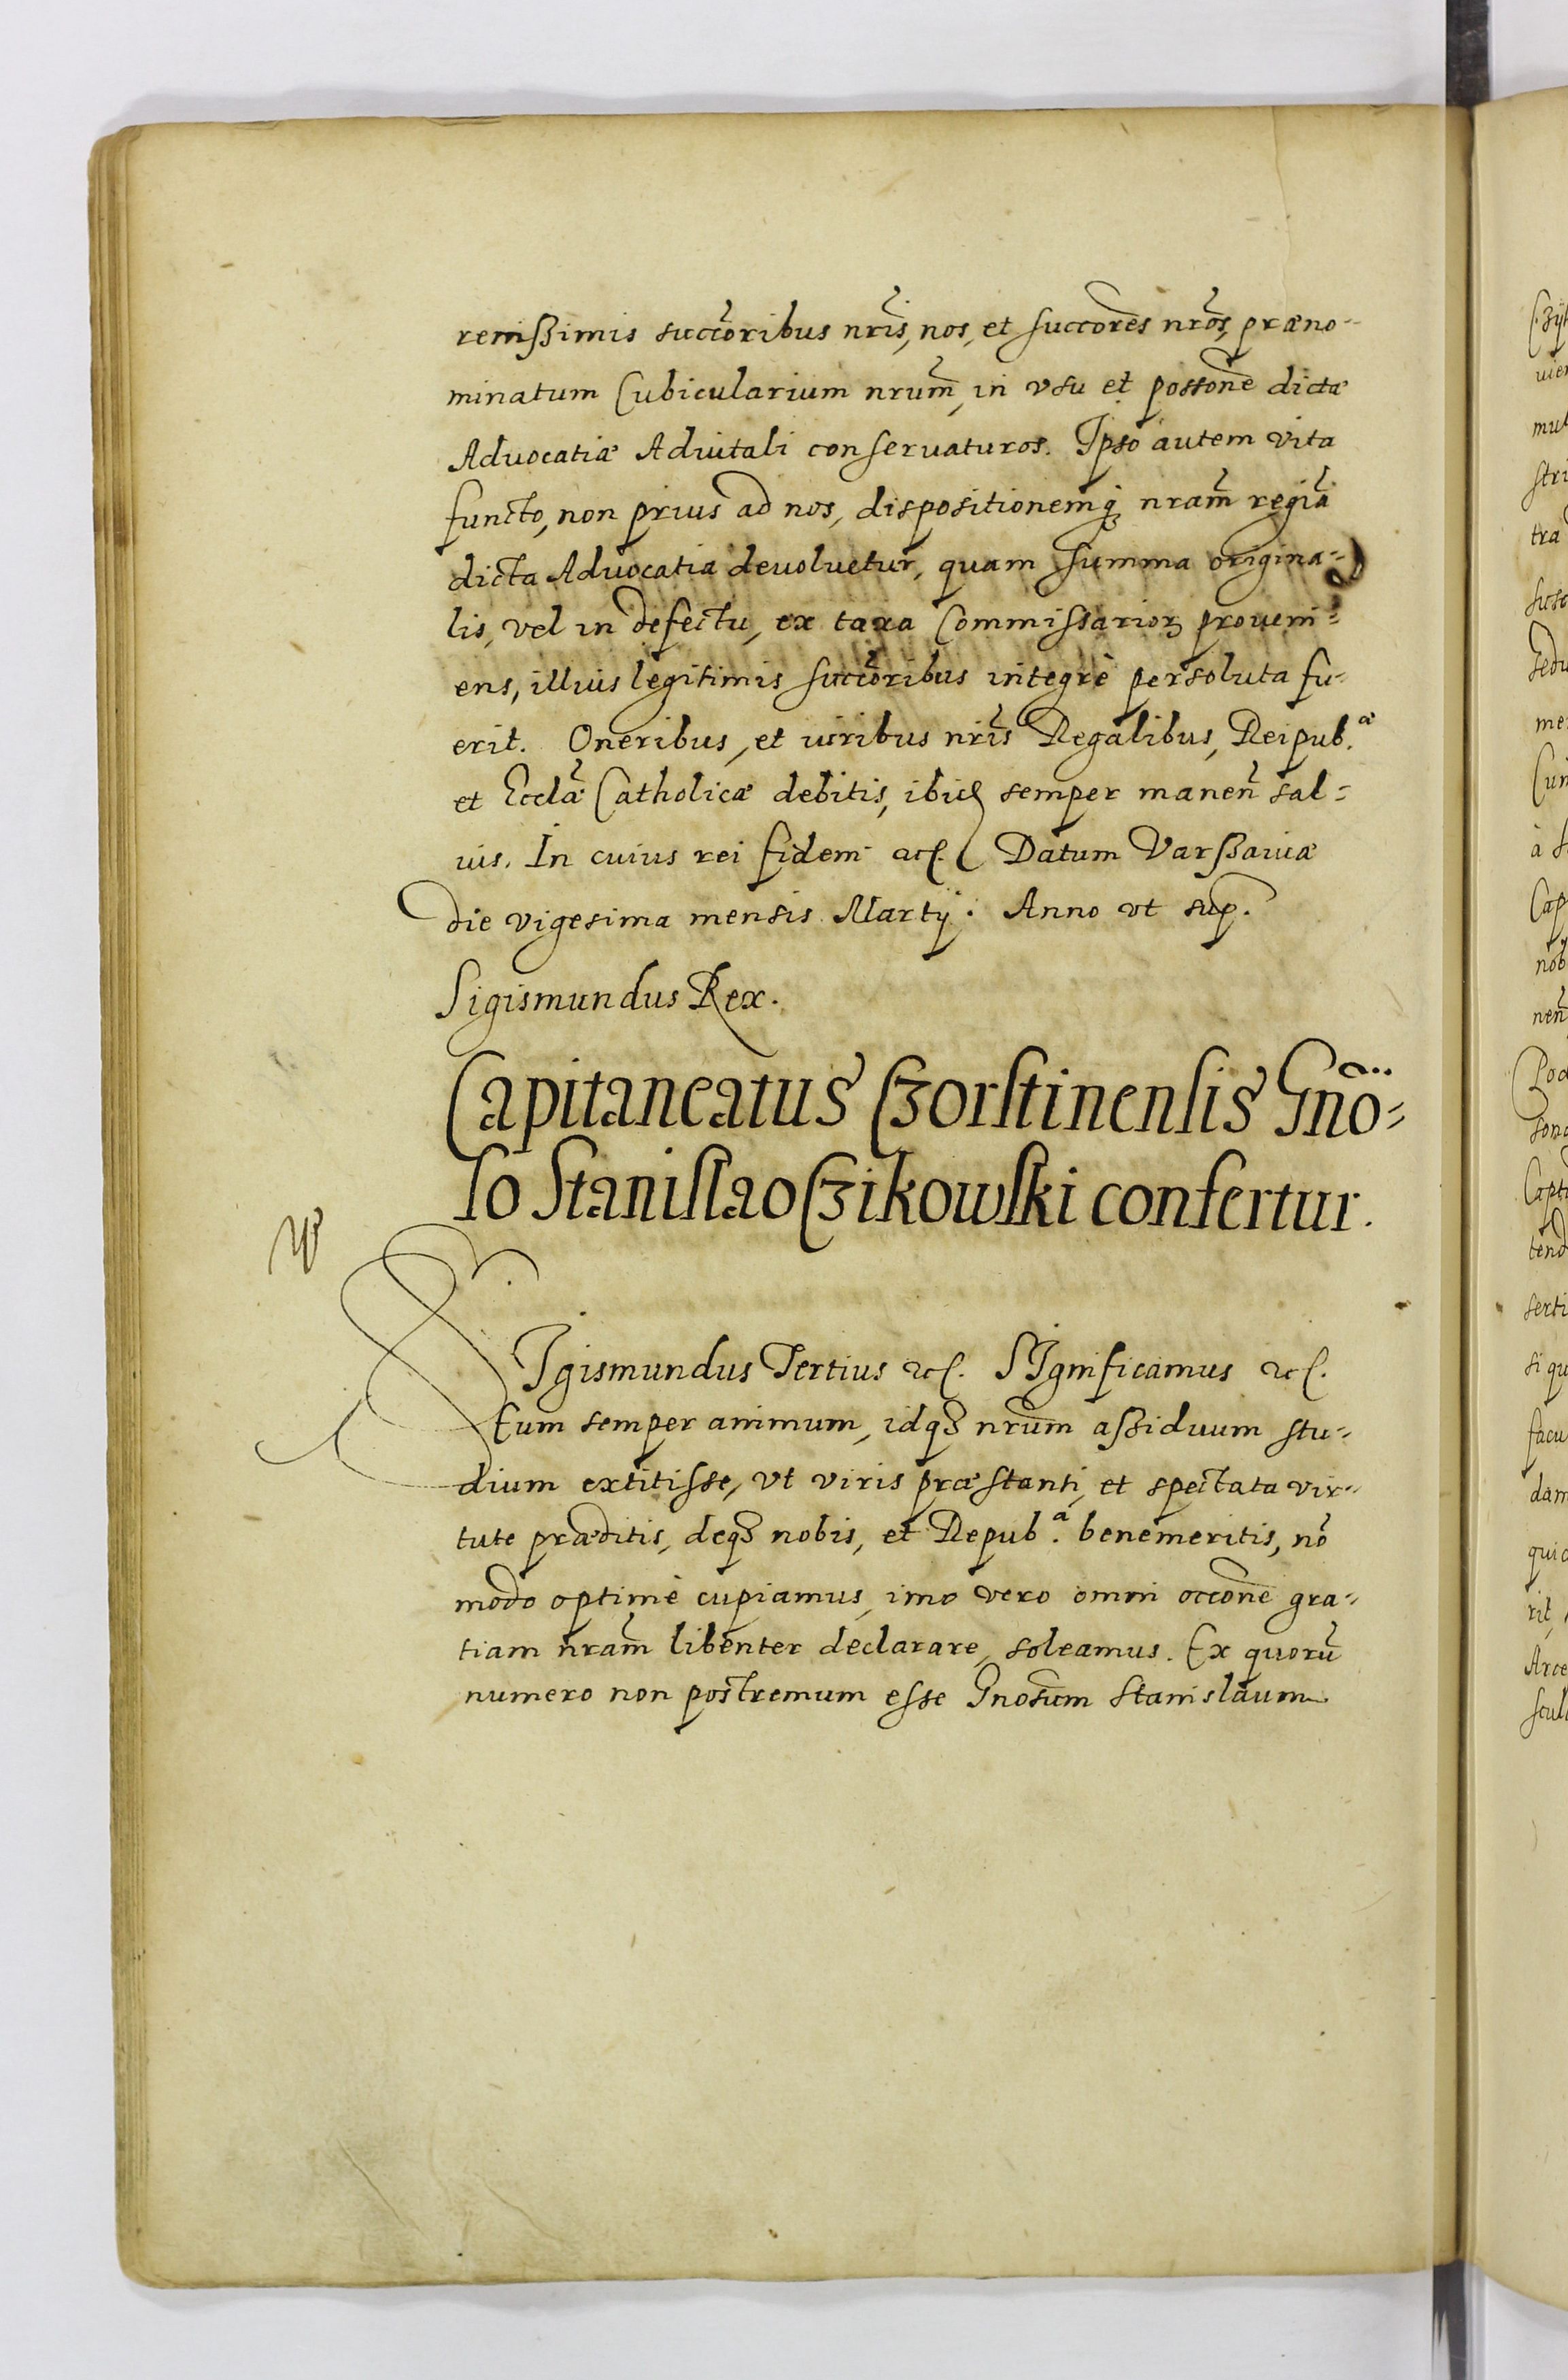 renissimis succõribus nrĩs, nos, et succorẽs nrõs, præno-
minatum Cubicularium nrum̃, in vsu et possonẽ dictæ
Advocatiæ Aduitali conseruaturos. Ipso autem vita
functo, non prius ad nos, dispositionemq́ꝫ nram̃ regiã
dicta Advocatia devoluetur, quam summa origina-
lis, vel in defectu, ex taxa Commissarioꝝ proueni-
ens, illius legitimis succõribus integrè persoluta fu-
erit. Oneribus, et iuribus nrĩs Regalibus, Reipub.æ
et Ecclæ̃ Catholicæ debitis, ibid semper manen̄ sal-
uis. In cuius rei fidem ac. Datum Varssauiæ
die vigesima mensis Martij. Anno vt sup.
Sigismundus Rex.
Capitaneatus Czorstinensis Gnõ-
so Stanislao Czikowski confertur.
SIgismundus Tertius etc. SIgnificamus etc.
Eum semper animum, idqꝫ nrum̃ assiduum stu-
dium extitisse, vt viris præstanti, et spectata vir-
tute præditis, deqꝫ nobis, et Repub.a benemeritis, nõ
modo optimè cupiamus, imo vero omni occonẽ gra-
tiam nram̃ libenter declarare, soleamus. Ex quorũ
numero non postremum esse Gnosum̃ Stanislaum